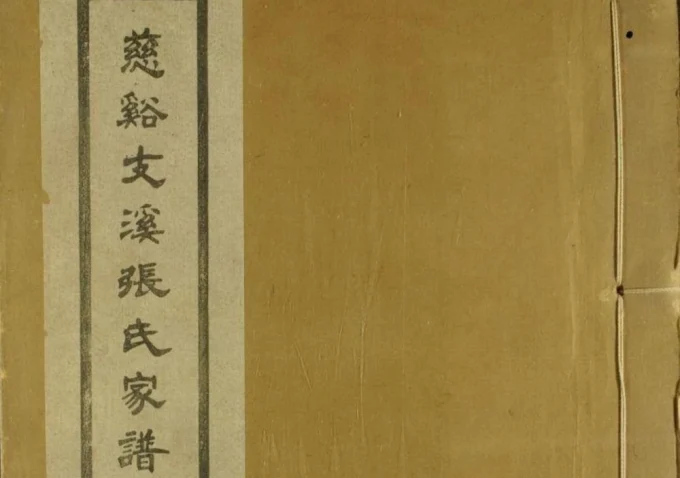 慈谿支溪張氏家譜